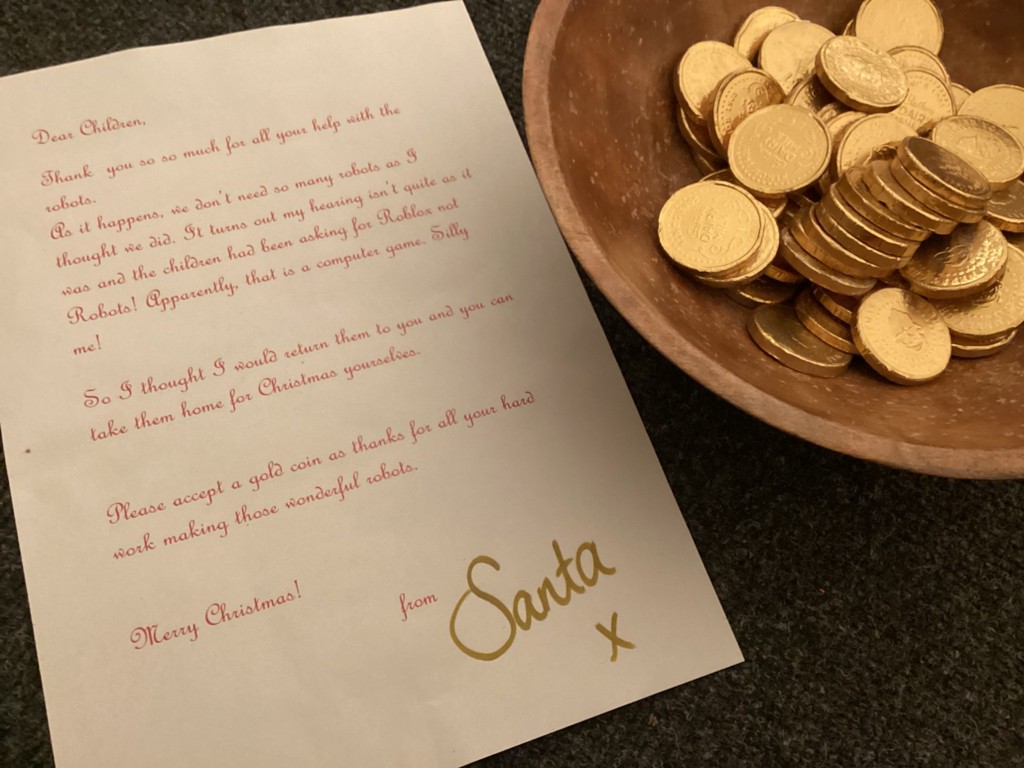 Dear Children,
Thank you so so much for all your help with the
robots.
As it happens, we don't need so many robots as I
thought we did. It turns out my hearing isn't quite as it
was and the children had been asking for Roblox not
Robots! Apparently, that is a computer game. Silly
me!
So I thought I would return them to you and you can
take them home for Christmas yourselves.
Please accept a gold coin as thanks for all your hard
work making those wonderful robots.
Merry Christmas! from Santa
x